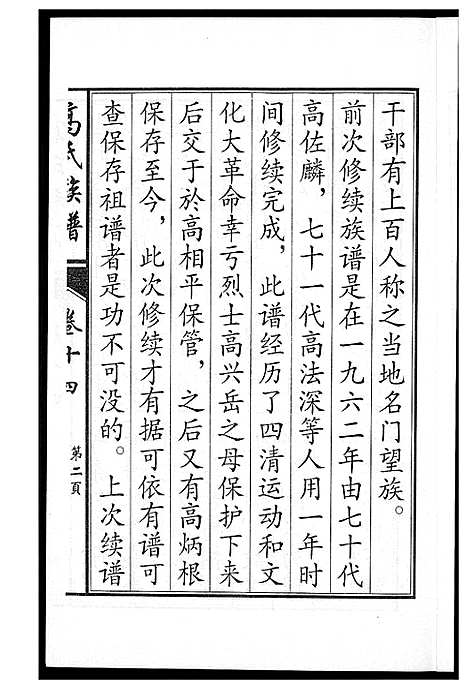 干部有上百人称之当地名门望族。
前次修续族谱是在一九六二年由七十代
高佐麟，七十一代高法深等人用一年时
间修续完成，此谱经历了四清运动和文
化大革命幸亏烈士高兴岳之母保护下来
后交于於高相平保管，之后又有高炳根
保存至今，此次修续才有据可依有谱可
查保存祖谱者是功不可没的。上次续谱
高氏族谱
卷十四
第二頁